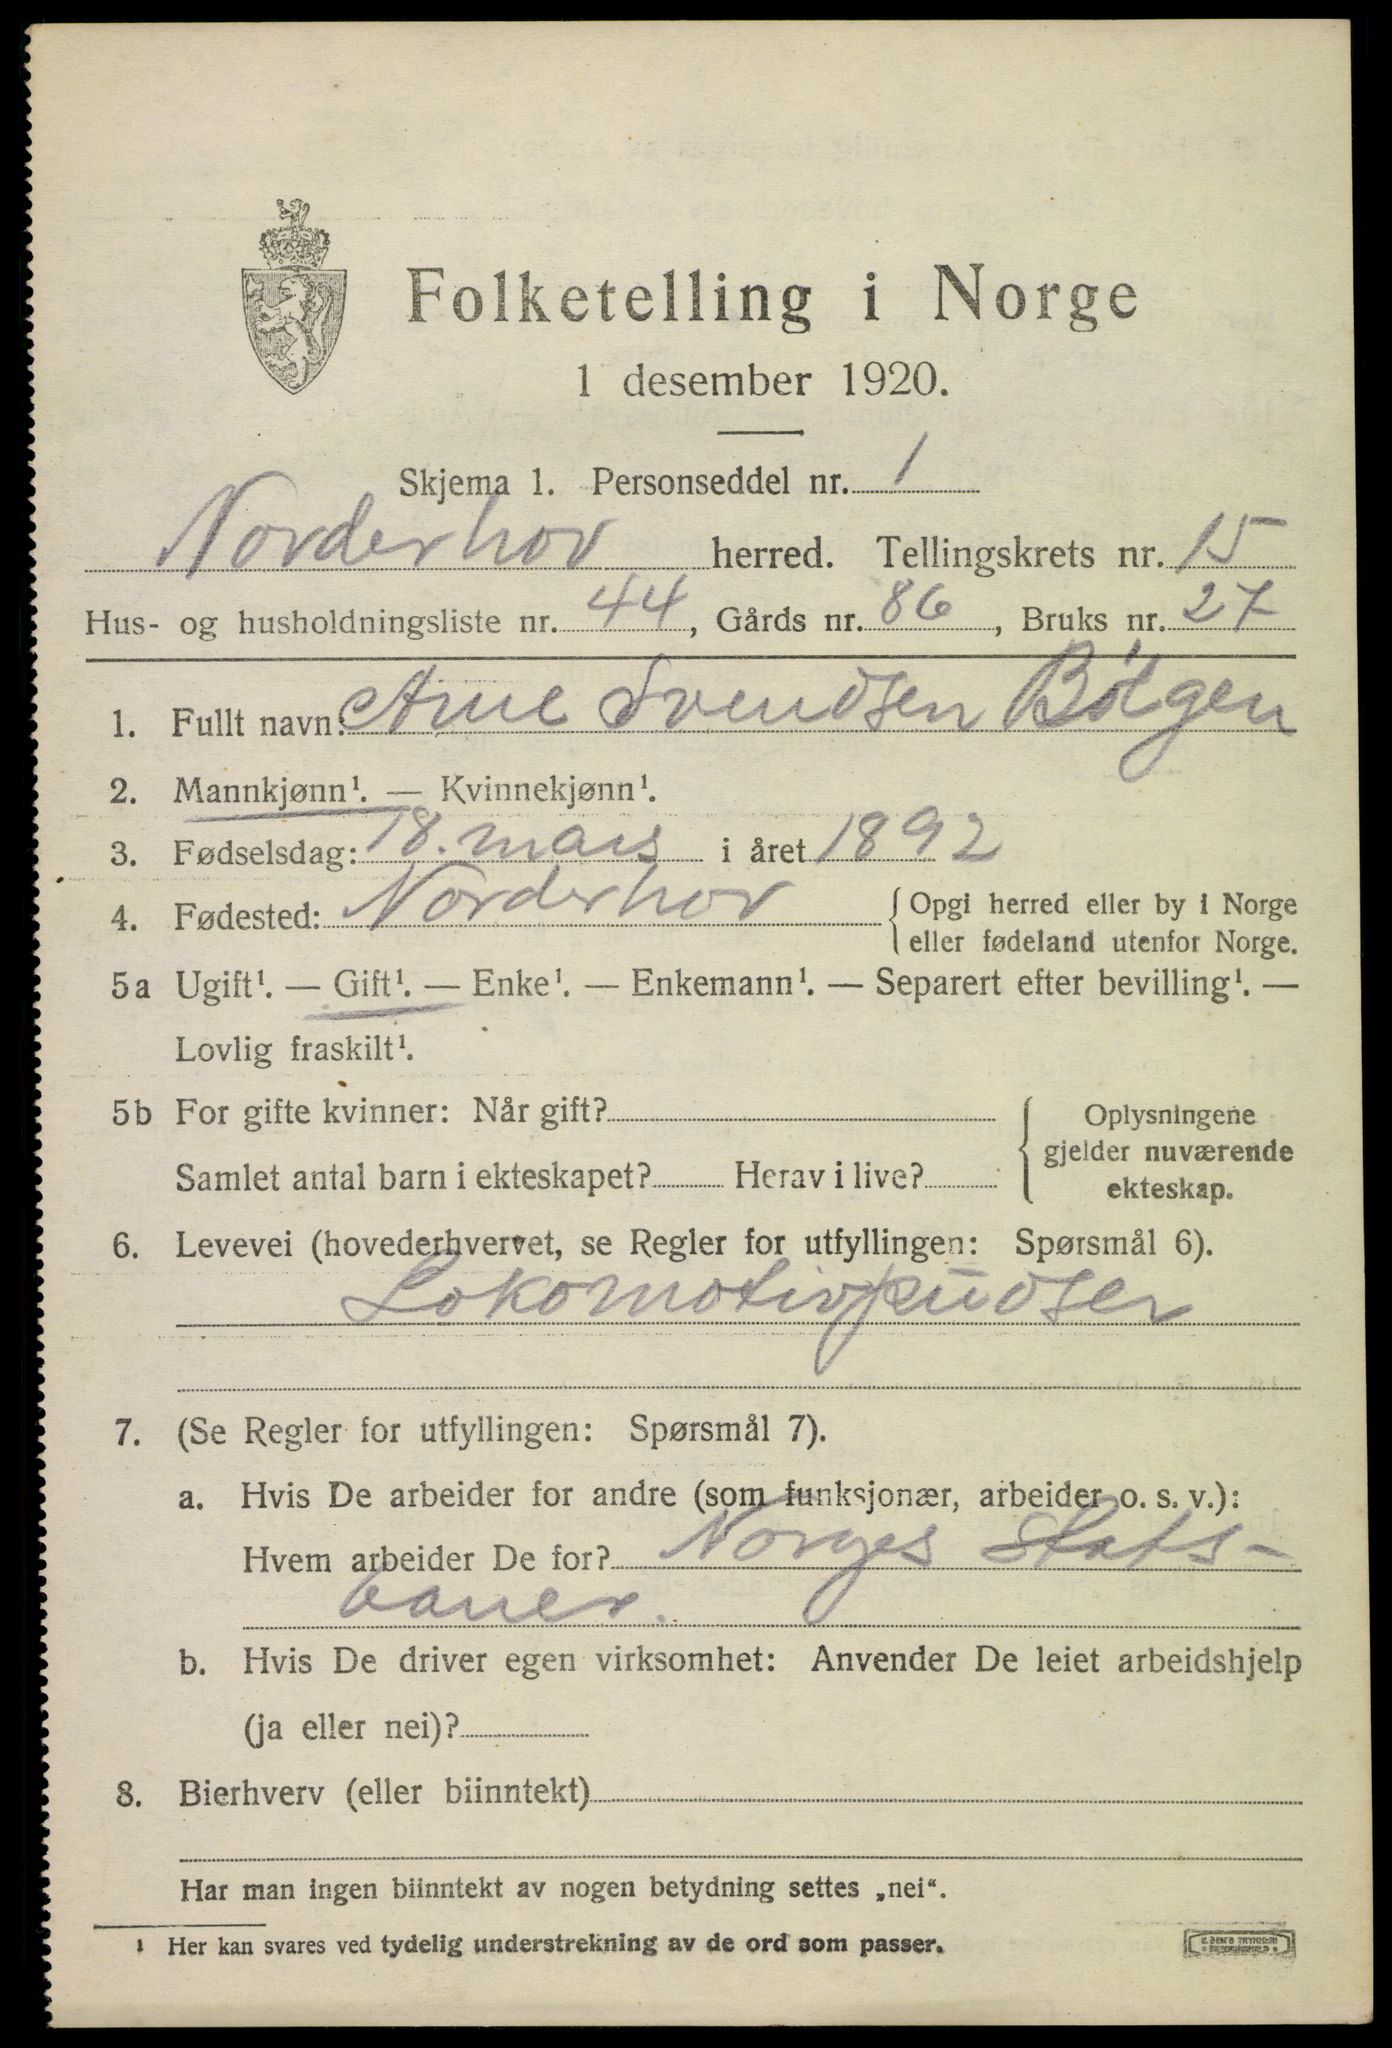 Folketelling i Norge
1 desember 1920.
Skjema 1. Personseddel nr. 1
Norderhov herred. Tellingskrets nr. 15
Hus- og husholdningsliste nr. 44, Gårds nr. 86, Bruks nr. 27
1. Fullt navn: Arne Svendsen Bølgen
2. Mannkjønn¹. — Kvinnekjønn¹.
3. Fødselsdag: 18. mars i året 1892
4. Fødested: Norderhov { Opgi herred eller by i Norge
eller fødeland utenfor Norge.
5a Ugift¹. — Gift¹. — Enke¹. — Enkemann¹. — Separert efter bevilling¹. —
Lovlig fraskilt¹.
5b For gifte kvinner: Når gift? { Oplysningene
gjelder nuværende
Samlet antal barn i ekteskapet? Herav i live? ekteskap.
6. Levevei (hovederhvervet, se Regler for utfyllingen: Spørsmål 6).
Lokomotivpudser
7. (Se Regler for utfyllingen: Spørsmål 7).
a. Hvis De arbeider for andre (som funksjonær, arbeider o. s. v.):
Hvem arbeider De for? Norges Stats-
baner.
b. Hvis De driver egen virksomhet: Anvender De leiet arbeidshjelp
(ja eller nei)?
8. Bierhverv (eller biinntekt)
Har man ingen biinntekt av nogen betydning settes „nei“.
¹ Her kan svares ved tydelig understrekning av de ord som passer.